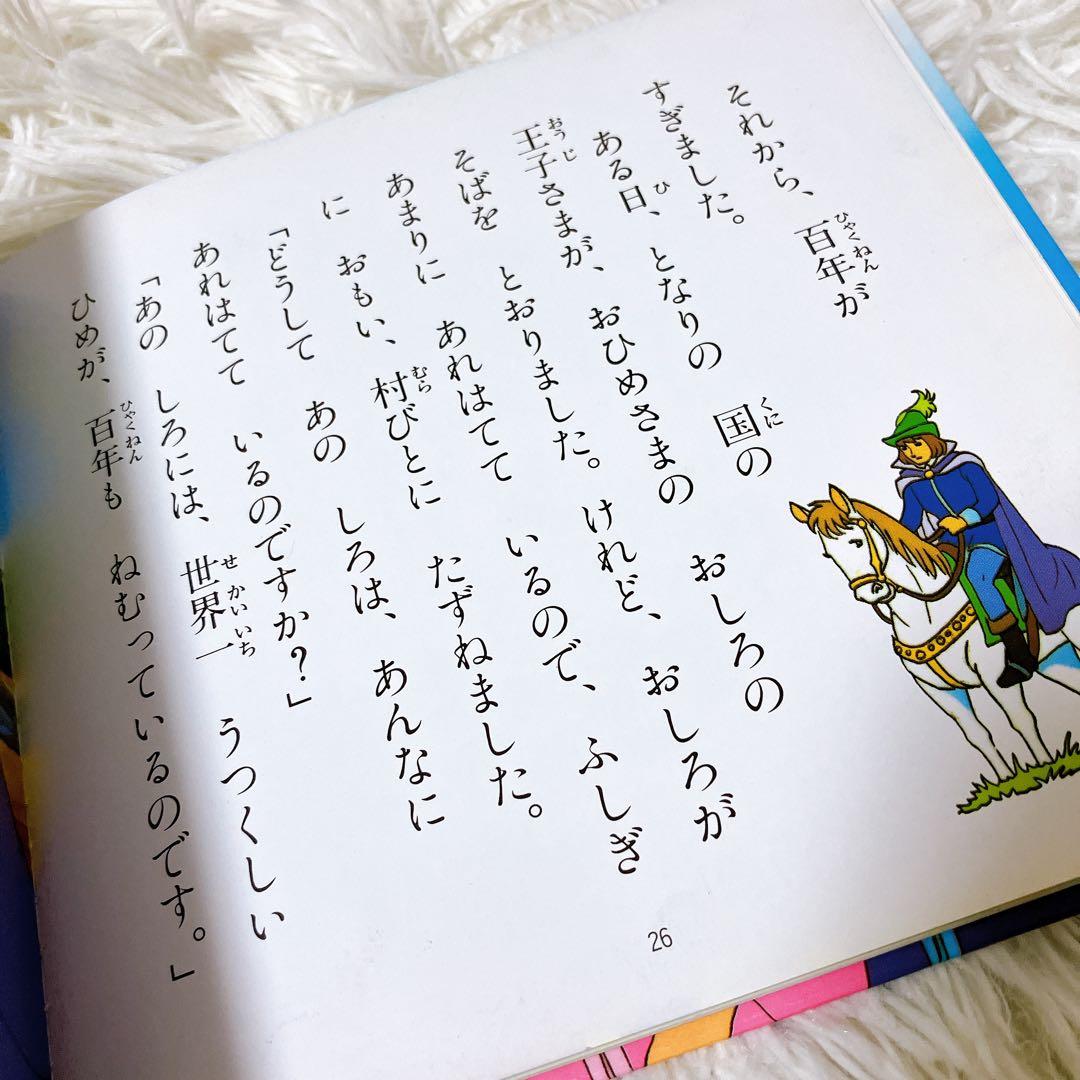 それから、 百年(ひゃくねん)が
すぎました。
ある日(ひ)、 となりの 国(くに)の
王子(おうじ)さまが、 おひめさまの おしろの
そばを とおりました。 けれど、 おしろが
あまりに あれはてて いるので、 ふしぎ
に おもい、 村(むら)びとに たずねました。
「どうして あの しろは、 あんなに
あれはてて いるのですか？」
「あの しろには、 世界一(せかいいち) うつくしい
ひめが、 百年(ひゃくねん)も ねむっているのです。」
26